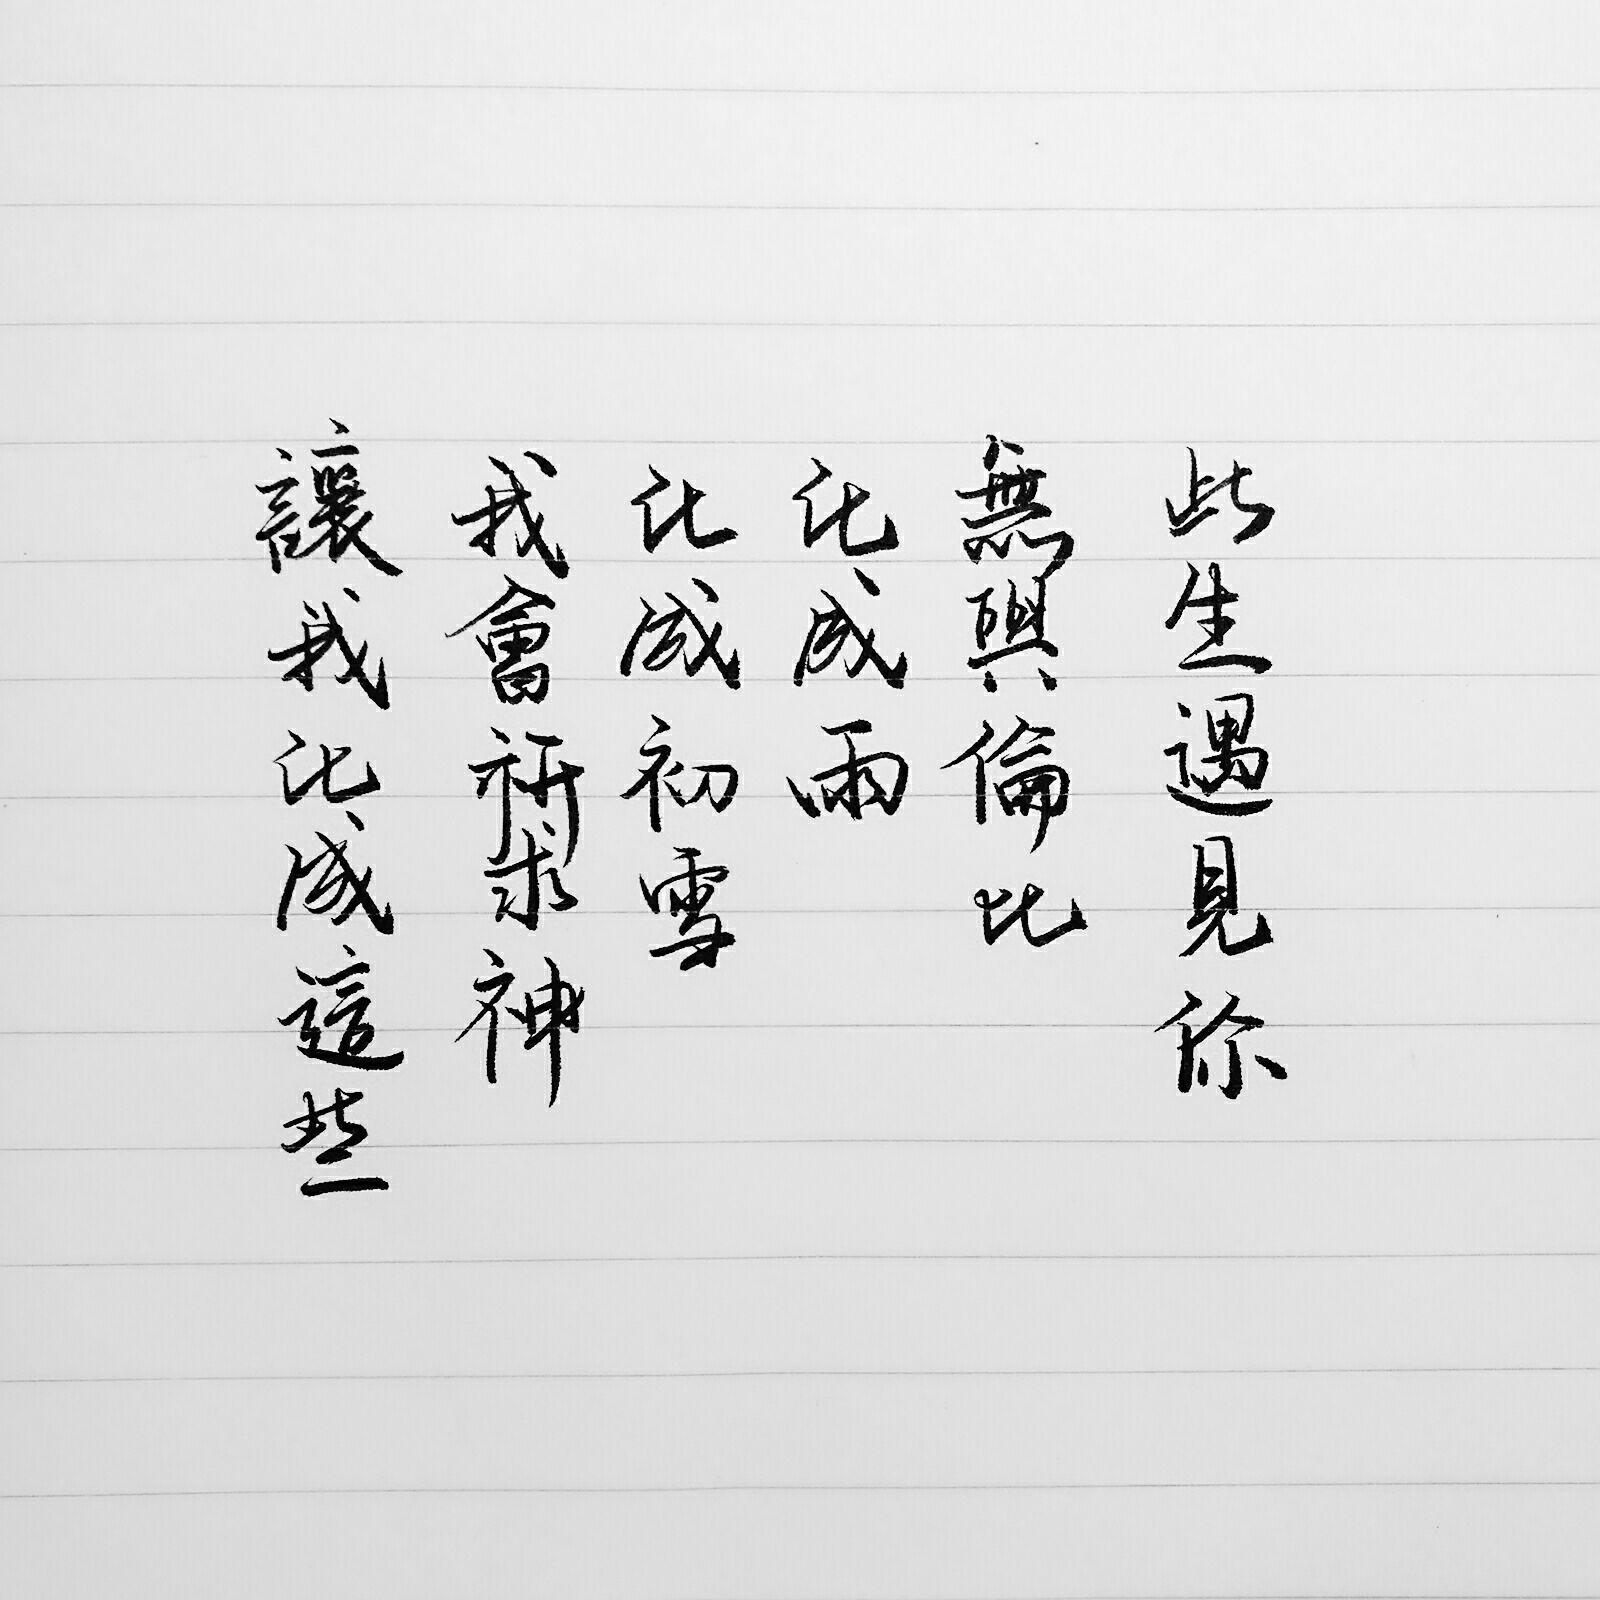 此生遇見你
無與倫比
化成雨
化成初雪
我會祈求神
讓我化成這些